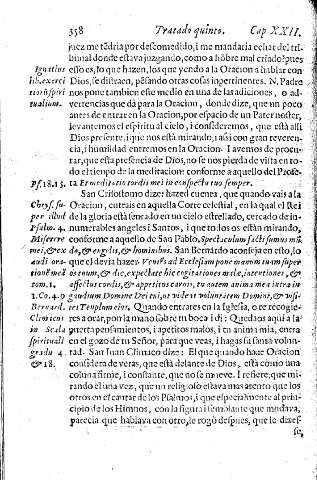 358 Tratado quinto. Cap XXII.
juez me tẽdria por descomedido, i me mandaria echar del tri-
bunal donde estava juzgando, como a hõbre mal criado? pues
Ignatius esso es, lo que hazen, los que yendo a la Oracion a hablar con
lib. exerci Dios, se distraen, pẽsando otras cosas inpertinentes. N. Padre
tiorũ spiri nos pone tambien este medio en una de las adiciones, o ad-
tualium. vertencias que dà para la Oracion, donde dize, que un poco
antes de entrar en la Oracion, por espacio de un Pater noster,
levantemos el espiritu al cielo, i consideremos, que està alli
Dios presente, i que nos està mirando, i assi con gran reveren-
cia, i humildad entremos en la Oracion. I avemos de procu-
rar, que esta presencia de Dios, no se nos pierda de vista en to-
do el tiempo de la meditacion: conforme a aquello del Profe-
Ps. 18. 15. ta Et meditatio cordis mei in conspectu tuo semper.
San Crisostomo dize: hazed cuenta, que quando vais a la
Chrys. su Oracion, entrais en aquella Corte celestial, en la qual el Rei
per illud de la gloria està sentado en un cielo estrellado, cercado de in-
Psalm. 4. numerables angeles i Santos, i que todos os están mirando,
Miserere conforme a aquello de San Pablo, Spectaculum facti sumus mũ
mei, & ex do, & angelis, & hominibus. San Bernardo aconseja en esto, lo
audi ora- que el deve hazer. Veniẽs ad Ecclesiam pone manum tuam super
tionẽ meã os tuum, & dic, expectate hic cogitationes malæ, intentiones, &
tom. 1. affectus cordis, & appetitus carnis, tu autem anima mea intra in
1. Co. 4. 9 gaudium Domini Dei tui, ut videas voluntatem Domini, & visi-
Bernard. tes Templum eius. Quando entrares en la Iglesia, o te recogie-
Climicus res a orar, pon la mano sobre tu boca i di: Quedaos aqui a la
in Scala puerta pensamientos, i apetitos malos, i tu anima mia, entra
spirituali en el gozo de tu Señor, para que veas, i hagas su santa volun-
gradu 4. tad. San Iuan Climaco dize: El que quando haze Oracion
& 18. considera de veras, que està delante de Dios, està como una
coluna firme, i constante, que no se mueve. I refiere, que mi-
rando el una vez, que un religioso estava mas atento que los
otros en el cantar de los Psalmos, i que especialmente al prin-
cipio de los Himnos, con la figura i semblante que mudava,
parecia que hablava con otro, le rogò despues, que le dixes-
se,